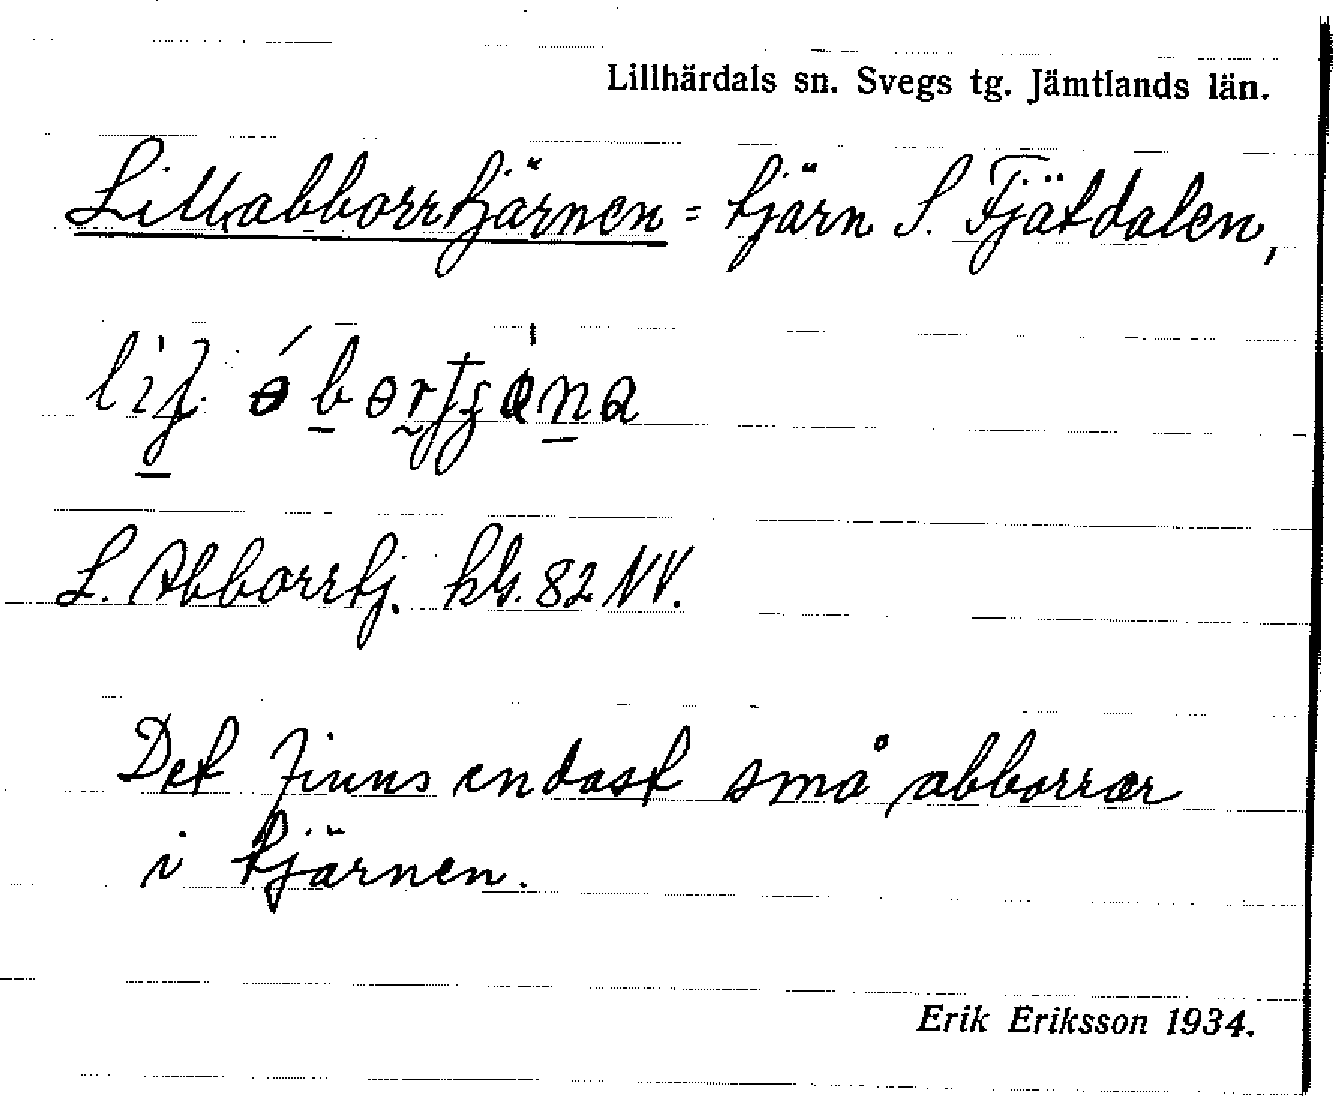 Lillhärdals sn. Svegs tg. Jämtlands län.
Lillabborrtjärnen = tjärn S. Fjätdalen,
L. Abborrtj. kbl. 82 NV.
Det finns endast små abborrar
i tjärnen.
Erik Eriksson 1934.